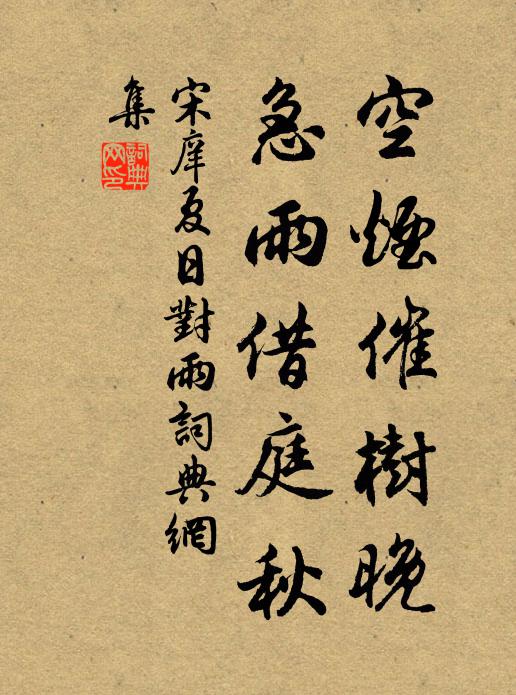 空煙催樹晚
急雨借庭秋
宋庠夏日對雨詞典網
集
詞典網印